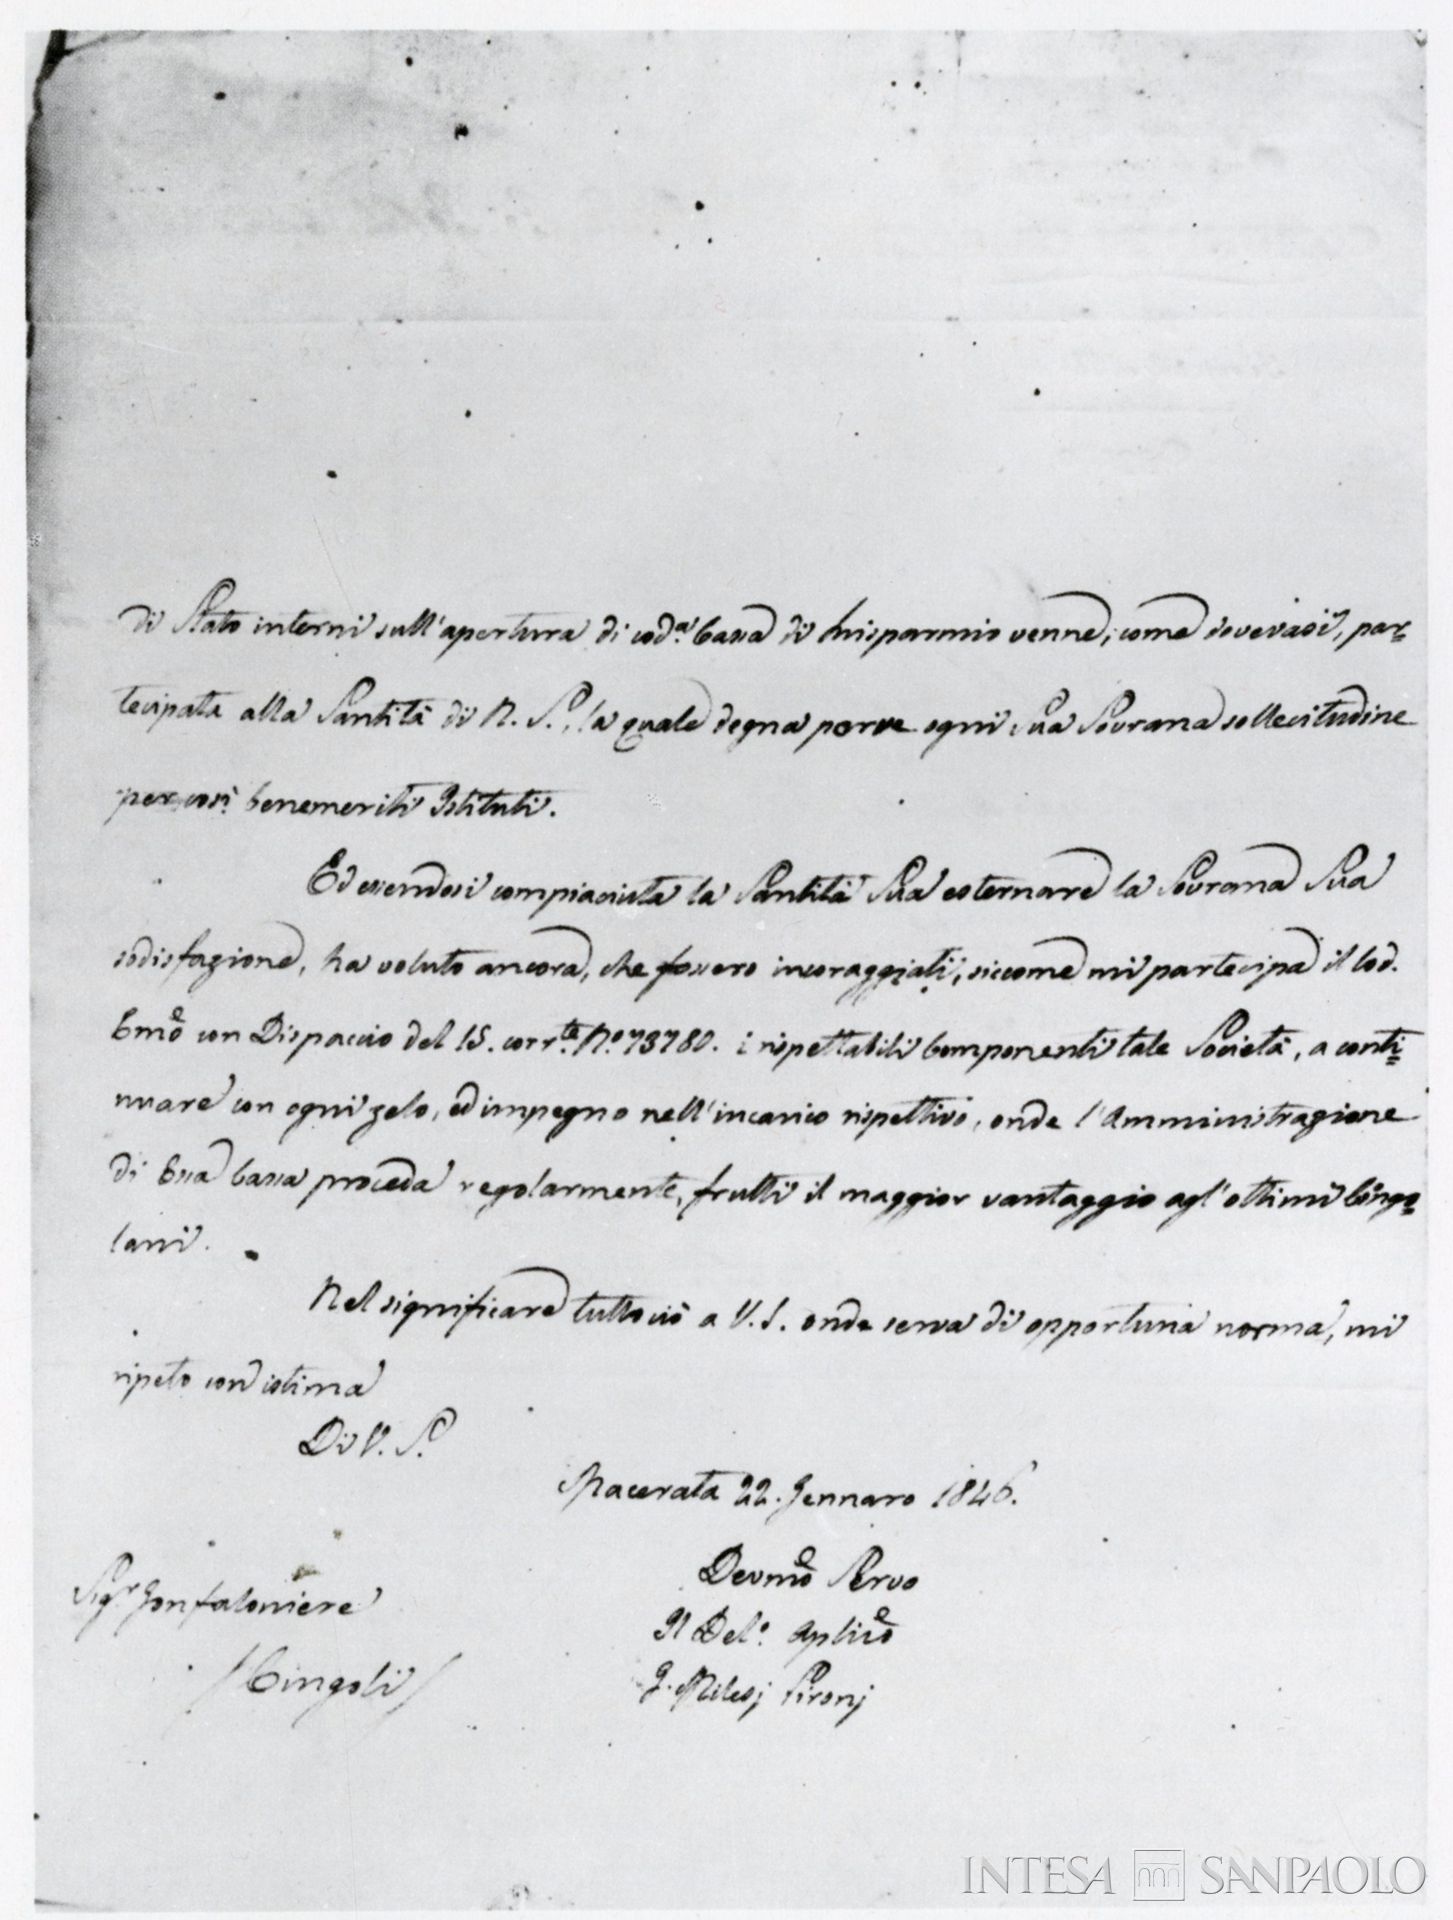 di Stato interni sull'apertura di cod.ª Cassa di Risparmio venne, come dovevasi, par=
tecipata alla Santità di N. S., la quale degna porre ogni Sua Sovrana sollecitudine
per così benemeriti Istituti.
Ed essendosi compiaciuta la Santità Sua esternare la Sovrana Sua
sodisfazione, ha voluto ancora, che fossero incoraggiati, siccome mi partecipa il lod.
Emo con Dispaccio del 15. corr.te N.º 73780. i rispettabili Componenti tale Società, a conti=
nuare con ogni zelo, ed impegno nell'incarico rispettivo, onde l'Amministrazione
di Essa Cassa proceda regolarmente, frutti il maggior vantaggio agl'ottimi Cingo=
lani.
Nel significare tuttociò a V. S. onde serva di opportuna norma, mi
ripeto con istima
Di V. S.
Macerata 22. Gennaro 1846.
Devmo Servo
Il Del.º Aplico
G. Milesj Pironj
Sigr Gonfaloniere
/Cingoli/
INTESA SANPAOLO